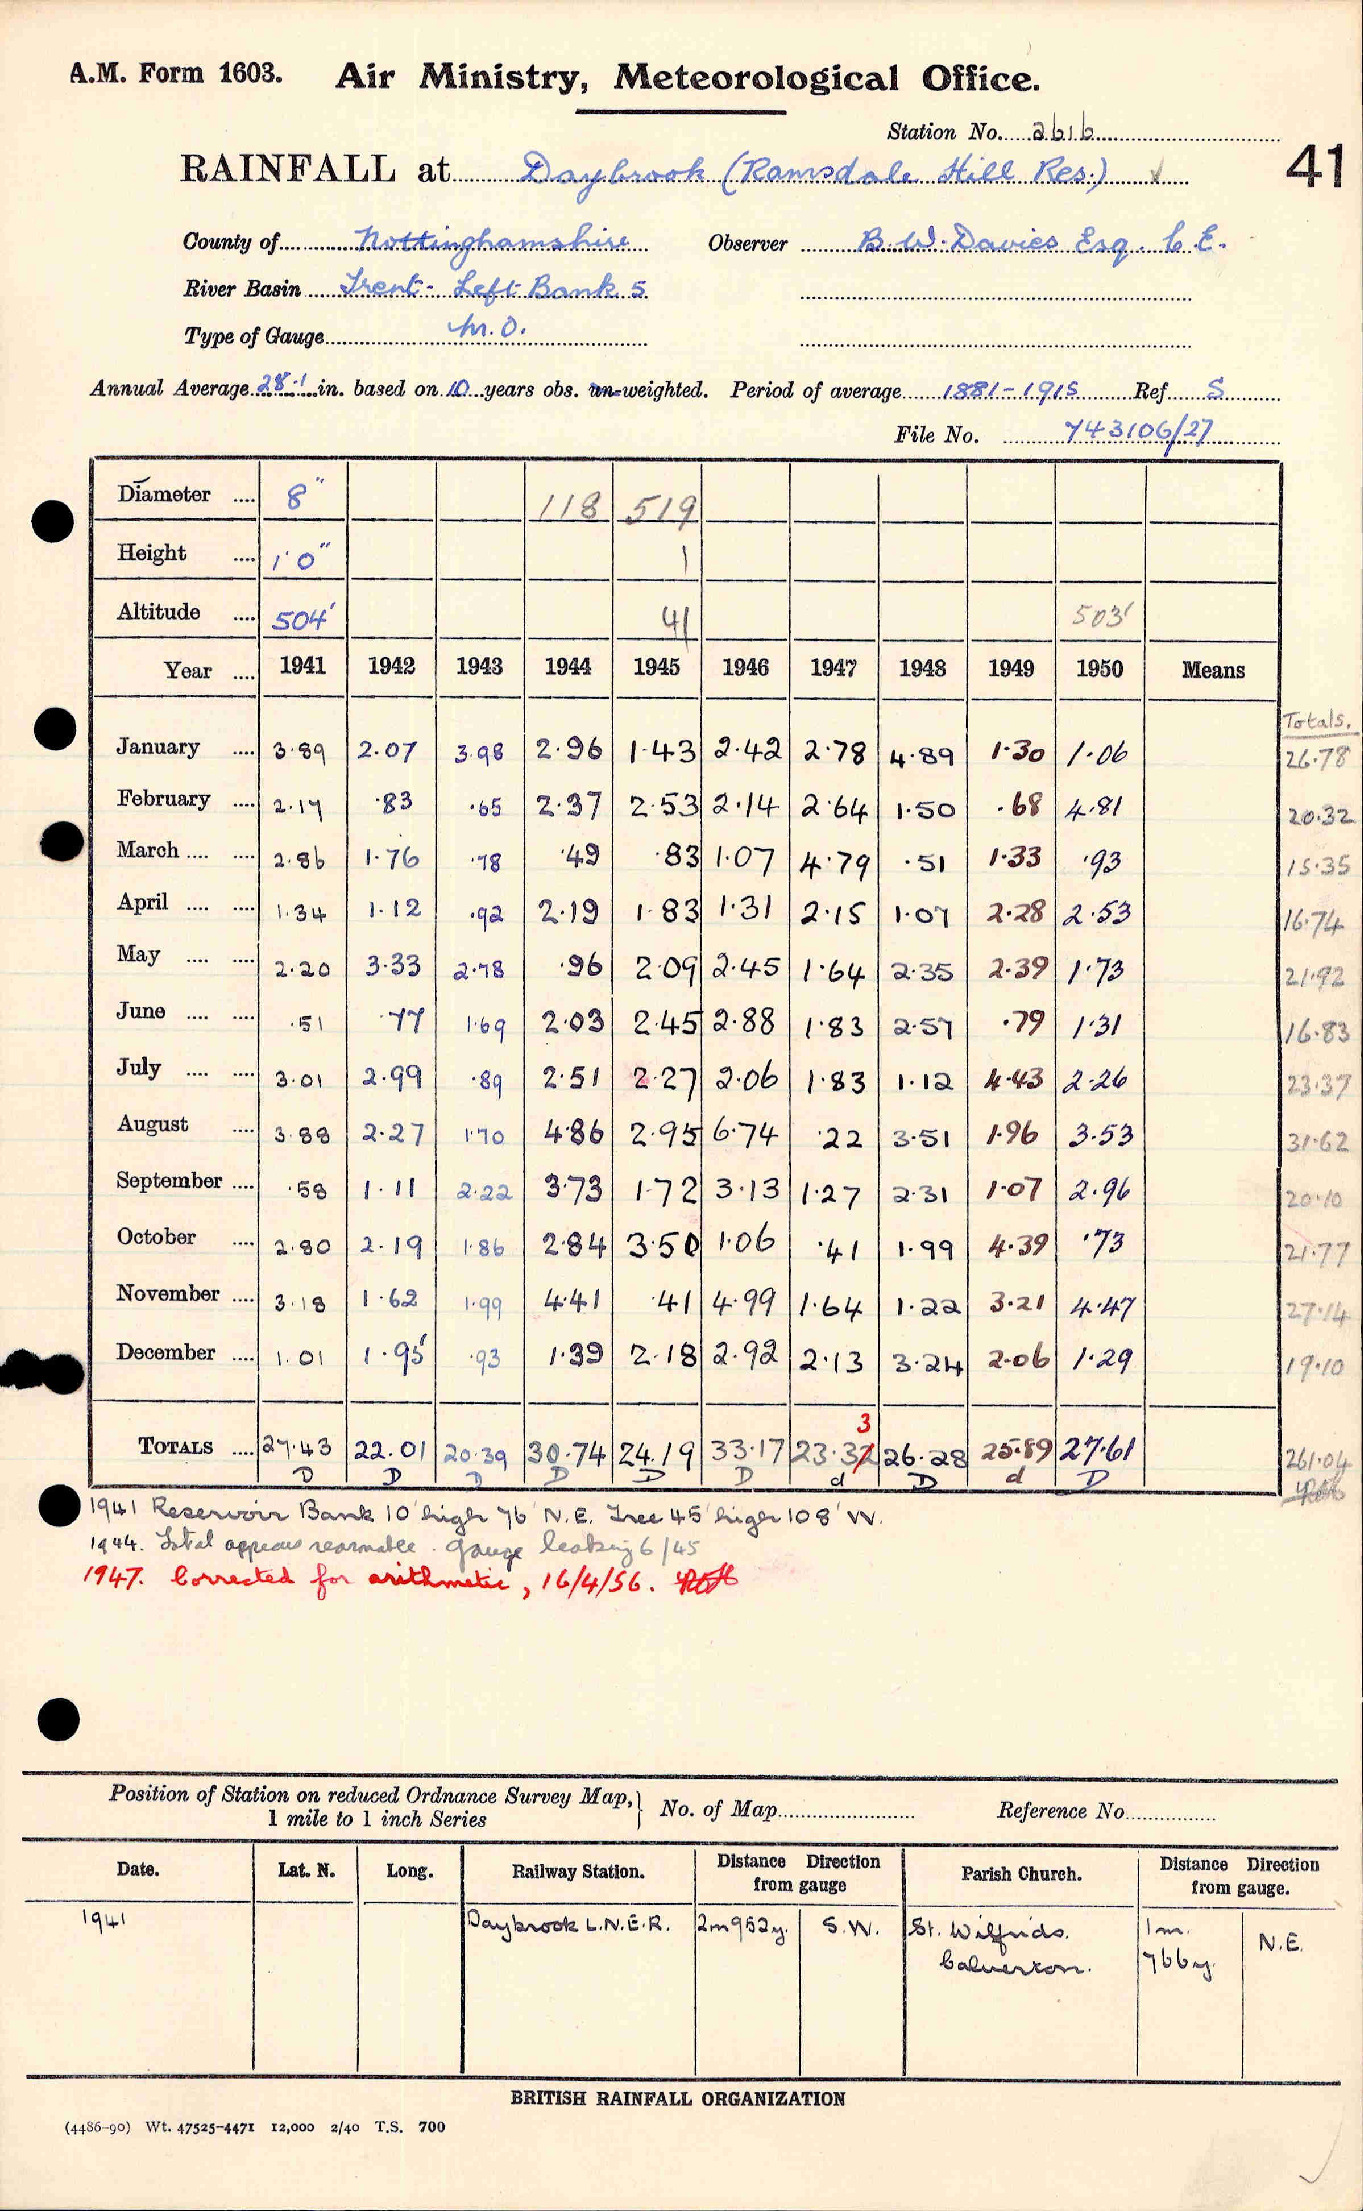 A.M. Form 1603. Air Ministry, Meteorological Office.
Station No. 2616
41
RAINFALL at Daybrook (Ramsdale Hill Res.) ✓
County of Nottinghamshire Observer B. W. Davies Esq. C.E.
River Basin Trent - Left Bank 5
Type of Gauge M.O.
Annual Average 28.1 in. based on 10 years obs. un-weighted. Period of average 1881-1915 Ref S
File No. 743106/27
Diameter .... 8" 118 519
Height .... 1'0" 1
Altitude .... 504' 41 503'
Year .... 1941 1942 1943 1944 1945 1946 1947 1948 1949 1950 Means
Totals.
January .... 3.89 2.07 3.98 2.96 1.43 2.42 2.78 4.89 1.30 1.06 26.78
February .... 2.17 .83 .65 2.37 2.53 2.14 2.64 1.50 .68 4.81 20.32
March .... .... 2.86 1.76 .78 .49 .83 1.07 4.79 .51 1.33 .93 15.35
April .... .... 1.34 1.12 .92 2.19 1.83 1.31 2.15 1.07 2.28 2.53 16.74
May .... .... 2.20 3.33 2.78 .96 2.09 2.45 1.64 2.35 2.39 1.73 21.92
June .... .... .51 .77 1.69 2.03 2.45 2.88 1.83 2.57 .79 1.31 16.83
July .... .... 3.01 2.99 .89 2.51 2.27 2.06 1.83 1.12 4.43 2.26 23.37
August .... 3.88 2.27 1.70 4.86 2.95 6.74 .22 3.51 1.96 3.53 31.62
September .... .58 1.11 2.22 3.73 1.72 3.13 1.27 2.31 1.07 2.96 20.10
October .... 2.80 2.19 1.86 2.84 3.50 1.06 .41 1.99 4.39 .73 21.77
November .... 3.18 1.62 1.99 4.41 .41 4.99 1.64 1.22 3.21 4.47 27.14
December .... 1.01 1.95 .93 1.39 2.18 2.92 2.13 3.24 2.06 1.29 19.10
3
TOTALS .... 27.43 22.01 20.39 30.74 24.19 33.17 23.32 26.28 25.89 27.61 261.04
D D D D D D d D d D
1941 Reservoir Bank 10' high 76' N.E. Tree 45' high 108' W.
1944. Total appears reasonable. gauge leaking 6/45
1947. Corrected for arithmetic, 16/4/56.
Position of Station on reduced Ordnance Survey Map, 1 mile to 1 inch Series No. of Map Reference No.
Date. Lat. N. Long. Railway Station. Distance Direction from gauge Parish Church. Distance Direction from gauge.
1941 Daybrook L.N.E.R. 2m 952y. S.W. St. Wilfrids. Calverton. 1m. 766y N.E.
BRITISH RAINFALL ORGANIZATION
(4486-90) Wt. 47525-4471 12,000 2/40 T.S. 700